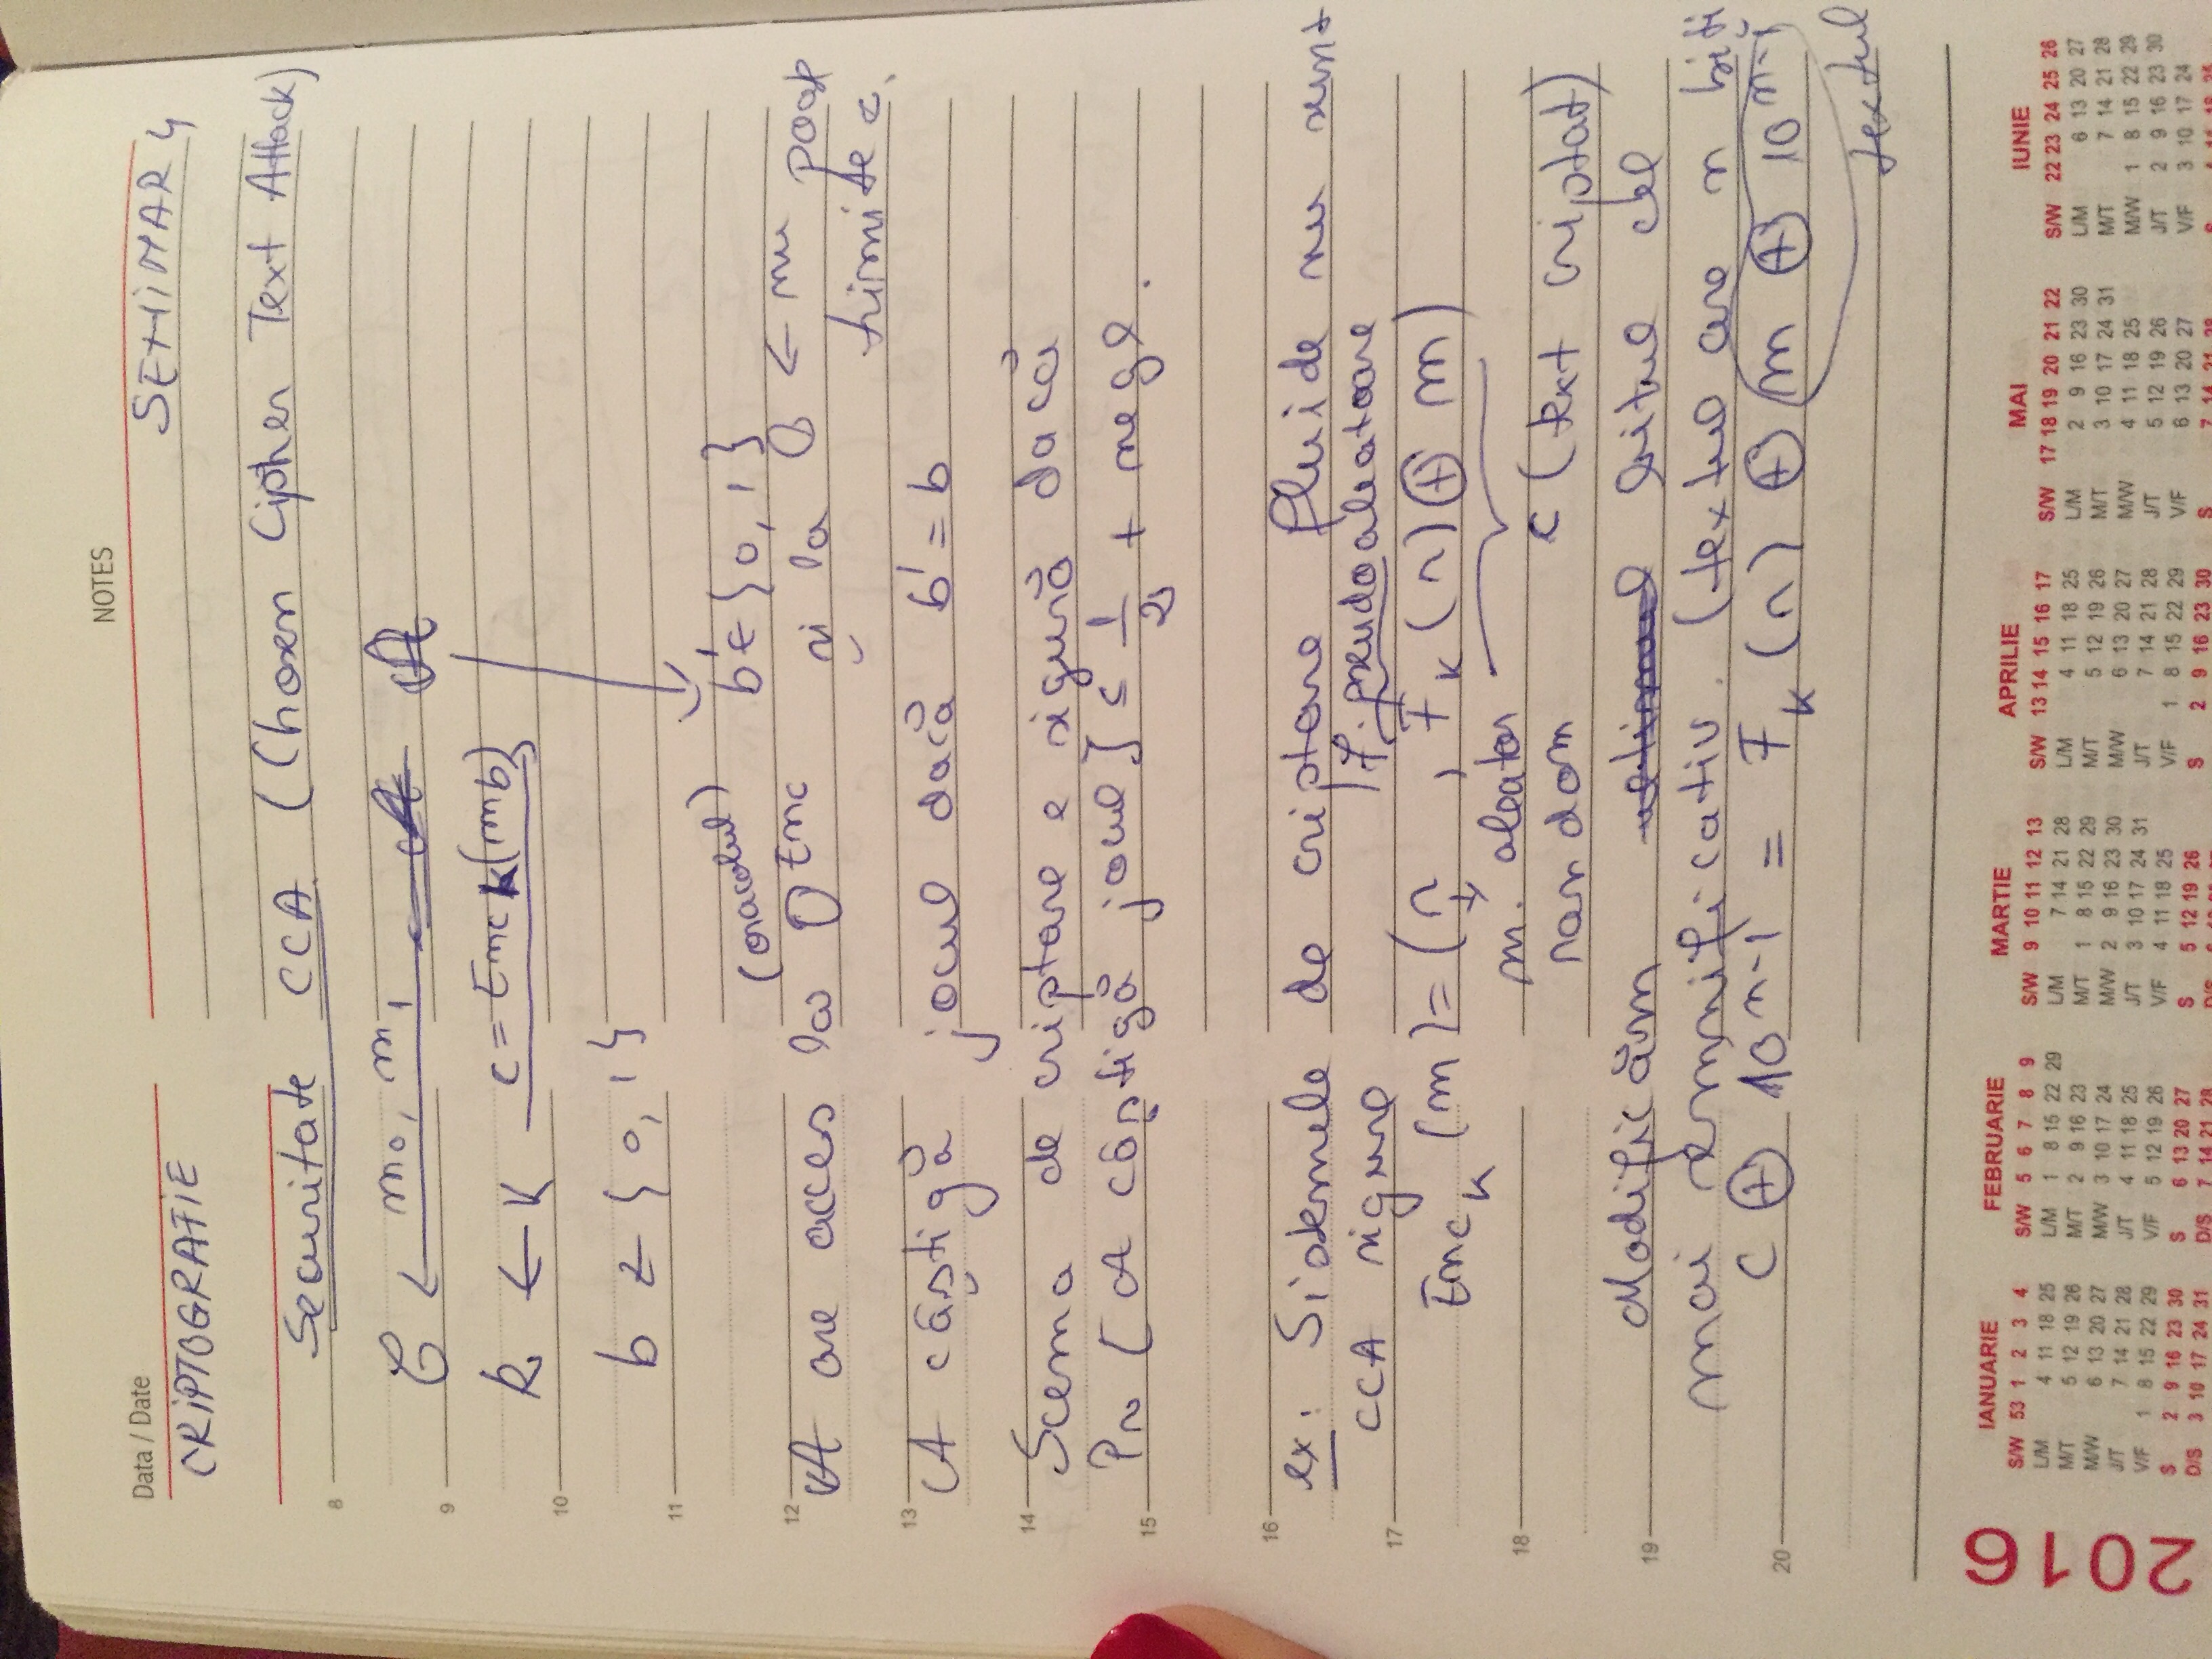 NOTES
Data / Date
CRIPTOGRAFIE
SEMINAR 4
Securitate CCA (Chosen Cipher Text Attack)
8
C ← m0, m1 A
9
k ← K c = Enc k(mb)
10
b ← {0, 1}
11
(oracolul) b' ∈ {0, 1}
12
A are acces la O^Enc și la O ← nu poate
trimite c.
13
A câștigă jocul dacă b' = b
14
Scema de criptare e sigură dacă
Pr [A câștigă jocul] ≤ 1/2 + negl.
15
16
ex: Sistemele de criptare fluide nu sunt
CCA sigure f. pseudoaleatoare
17
Enc_K (m) = (r , F_K (r) ⊕ m)
18
m. aleator
c (text criptat)
random
19
Modificăm bitul cel
mai semnificativ. (textul are n biți
20
C ⊕ 10^n-1 = F_K (r) ⊕ m ⊕ 10^n-1
textul
2016
IANUARIE
S/W 53 1 2 3 4
L/M 4 11 18 25
M/T 5 12 19 26
M/W 6 13 20 27
J/T 7 14 21 28
V/F 1 8 15 22 29
S 2 9 16 23 30
D/S 3 10 17 24 31
FEBRUARIE
S/W 5 6 7 8 9
L/M 1 8 15 22 29
M/T 2 9 16 23
M/W 3 10 17 24
J/T 4 11 18 25
V/F 5 12 19 26
S 6 13 20 27
D/S 7 14 21 28
MARTIE
S/W 9 10 11 12 13
L/M 7 14 21 28
M/T 1 8 15 22 29
M/W 2 9 16 23 30
J/T 3 10 17 24 31
V/F 4 11 18 25
S 5 12 19 26
APRILIE
S/W 13 14 15 16 17
L/M 4 11 18 25
M/T 5 12 19 26
M/W 6 13 20 27
J/T 7 14 21 28
V/F 1 8 15 22 29
S 2 9 16 23 30
MAI
S/W 17 18 19 20 21 22
L/M 2 9 16 23 30
M/T 3 10 17 24 31
M/W 4 11 18 25
J/T 5 12 19 26
V/F 6 13 20 27
S 7 14 21 28
IUNIE
S/W 22 23 24 25 26
L/M 6 13 20 27
M/T 7 14 21 28
M/W 1 8 15 22 29
J/T 2 9 16 23 30
V/F 3 10 17 24